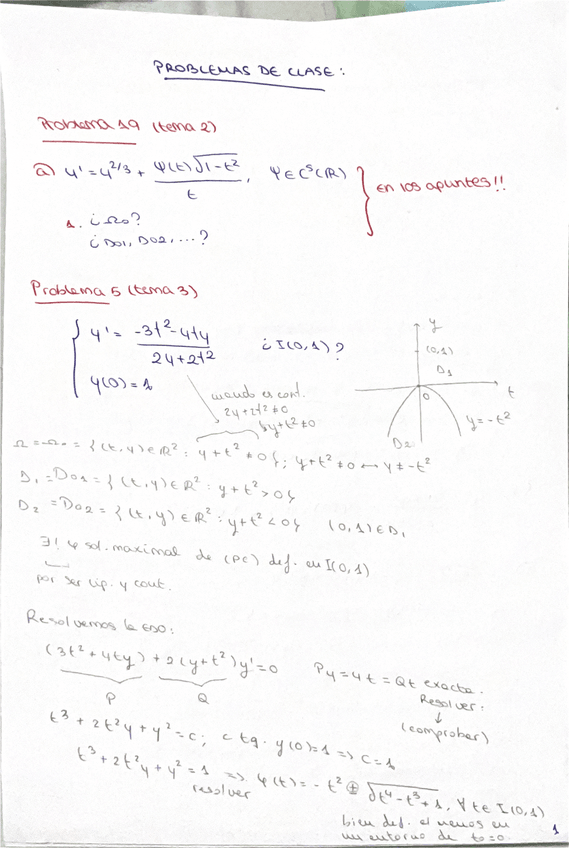 PROBLEMAS DE CLASE:
Problema 19 (tema 2)
a) y' = y^{2/3} + \frac{φ(t)\sqrt{1-t^2}}{t}, φ ∈ C^s(ℝ) } En los apuntes!!
1. ¿Ω_0?
¿D_{01}, D_{02}, ...?
Problema 5 (tema 3)
{ y' = \frac{-3t^2-4ty}{2y+2t^2} ¿I(0,1)?
y(0) = 1
cuando es cont.
2y+2t^2≠0
y+t^2≠0
y
(0,1)
D_1
0
t
y=-t^2
D_2
Ω = Ω_0 = {(t,y) ∈ ℝ^2 : y+t^2 ≠ 0}; y+t^2 ≠ 0 ↔ y ≠ -t^2
D_1 = D_{01} = {(t,y) ∈ ℝ^2 : y+t^2 > 0}
D_2 = D_{02} = {(t,y) ∈ ℝ^2 : y+t^2 < 0} (0,1) ∈ D_1
∃! φ sol. maximal de (PC) def. en I(0,1)
por ser lip. y cont.
Resolvemos la EDO:
(3t^2+4ty) + 2(y+t^2)y' = 0 P_y = 4t = Q_t exacta.
P Q
Resolver:
↓
(comprobar)
t^3 + 2t^2y + y^2 = c; c tq. y(0)=1 => c=1
t^3 + 2t^2y + y^2 = 1 => φ(t) = -t^2 ⊕ \sqrt{t^4-t^3+1}, ∀ t ∈ I(0,1)
resolver
bien def. al menos en
un entorno de t_0=0.
1